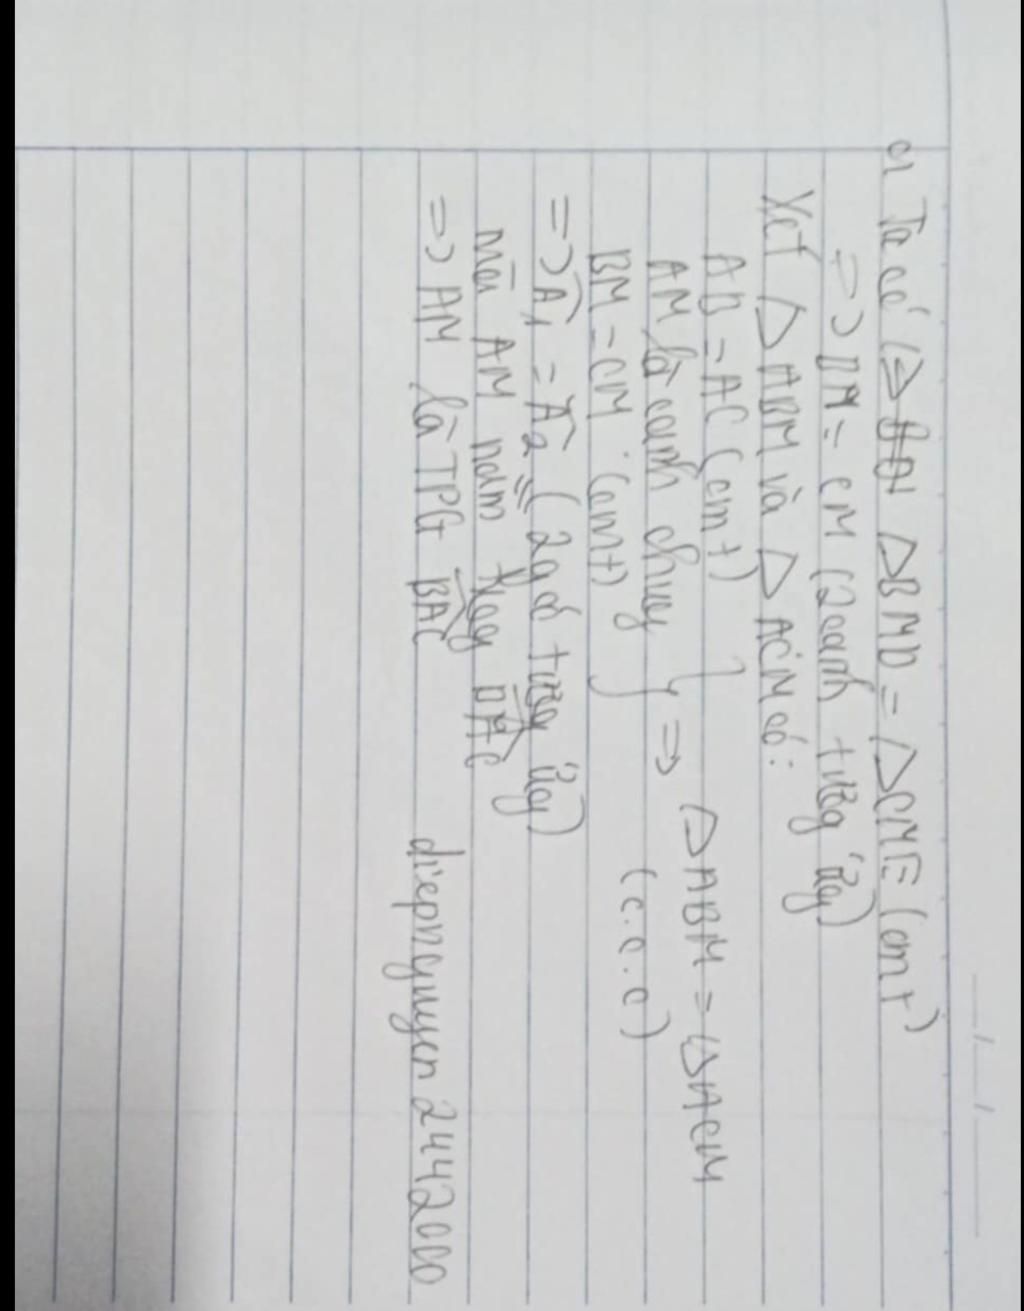 c) Ta có ΔBMD = ΔCME (cmt)
=> BM = CM (2 cạnh tương ứng)
Xét ΔABM và ΔACM có:
AB = AC (cmt)
AM là cạnh chung } => ΔABM = ΔACM
BM = CM (cmt) (c.c.c)
=> Â₁ = Â₂ (2 góc tương ứng)
mà AM nằm trong BAC
=> AM là TPG BAC diepnguyen 2442000